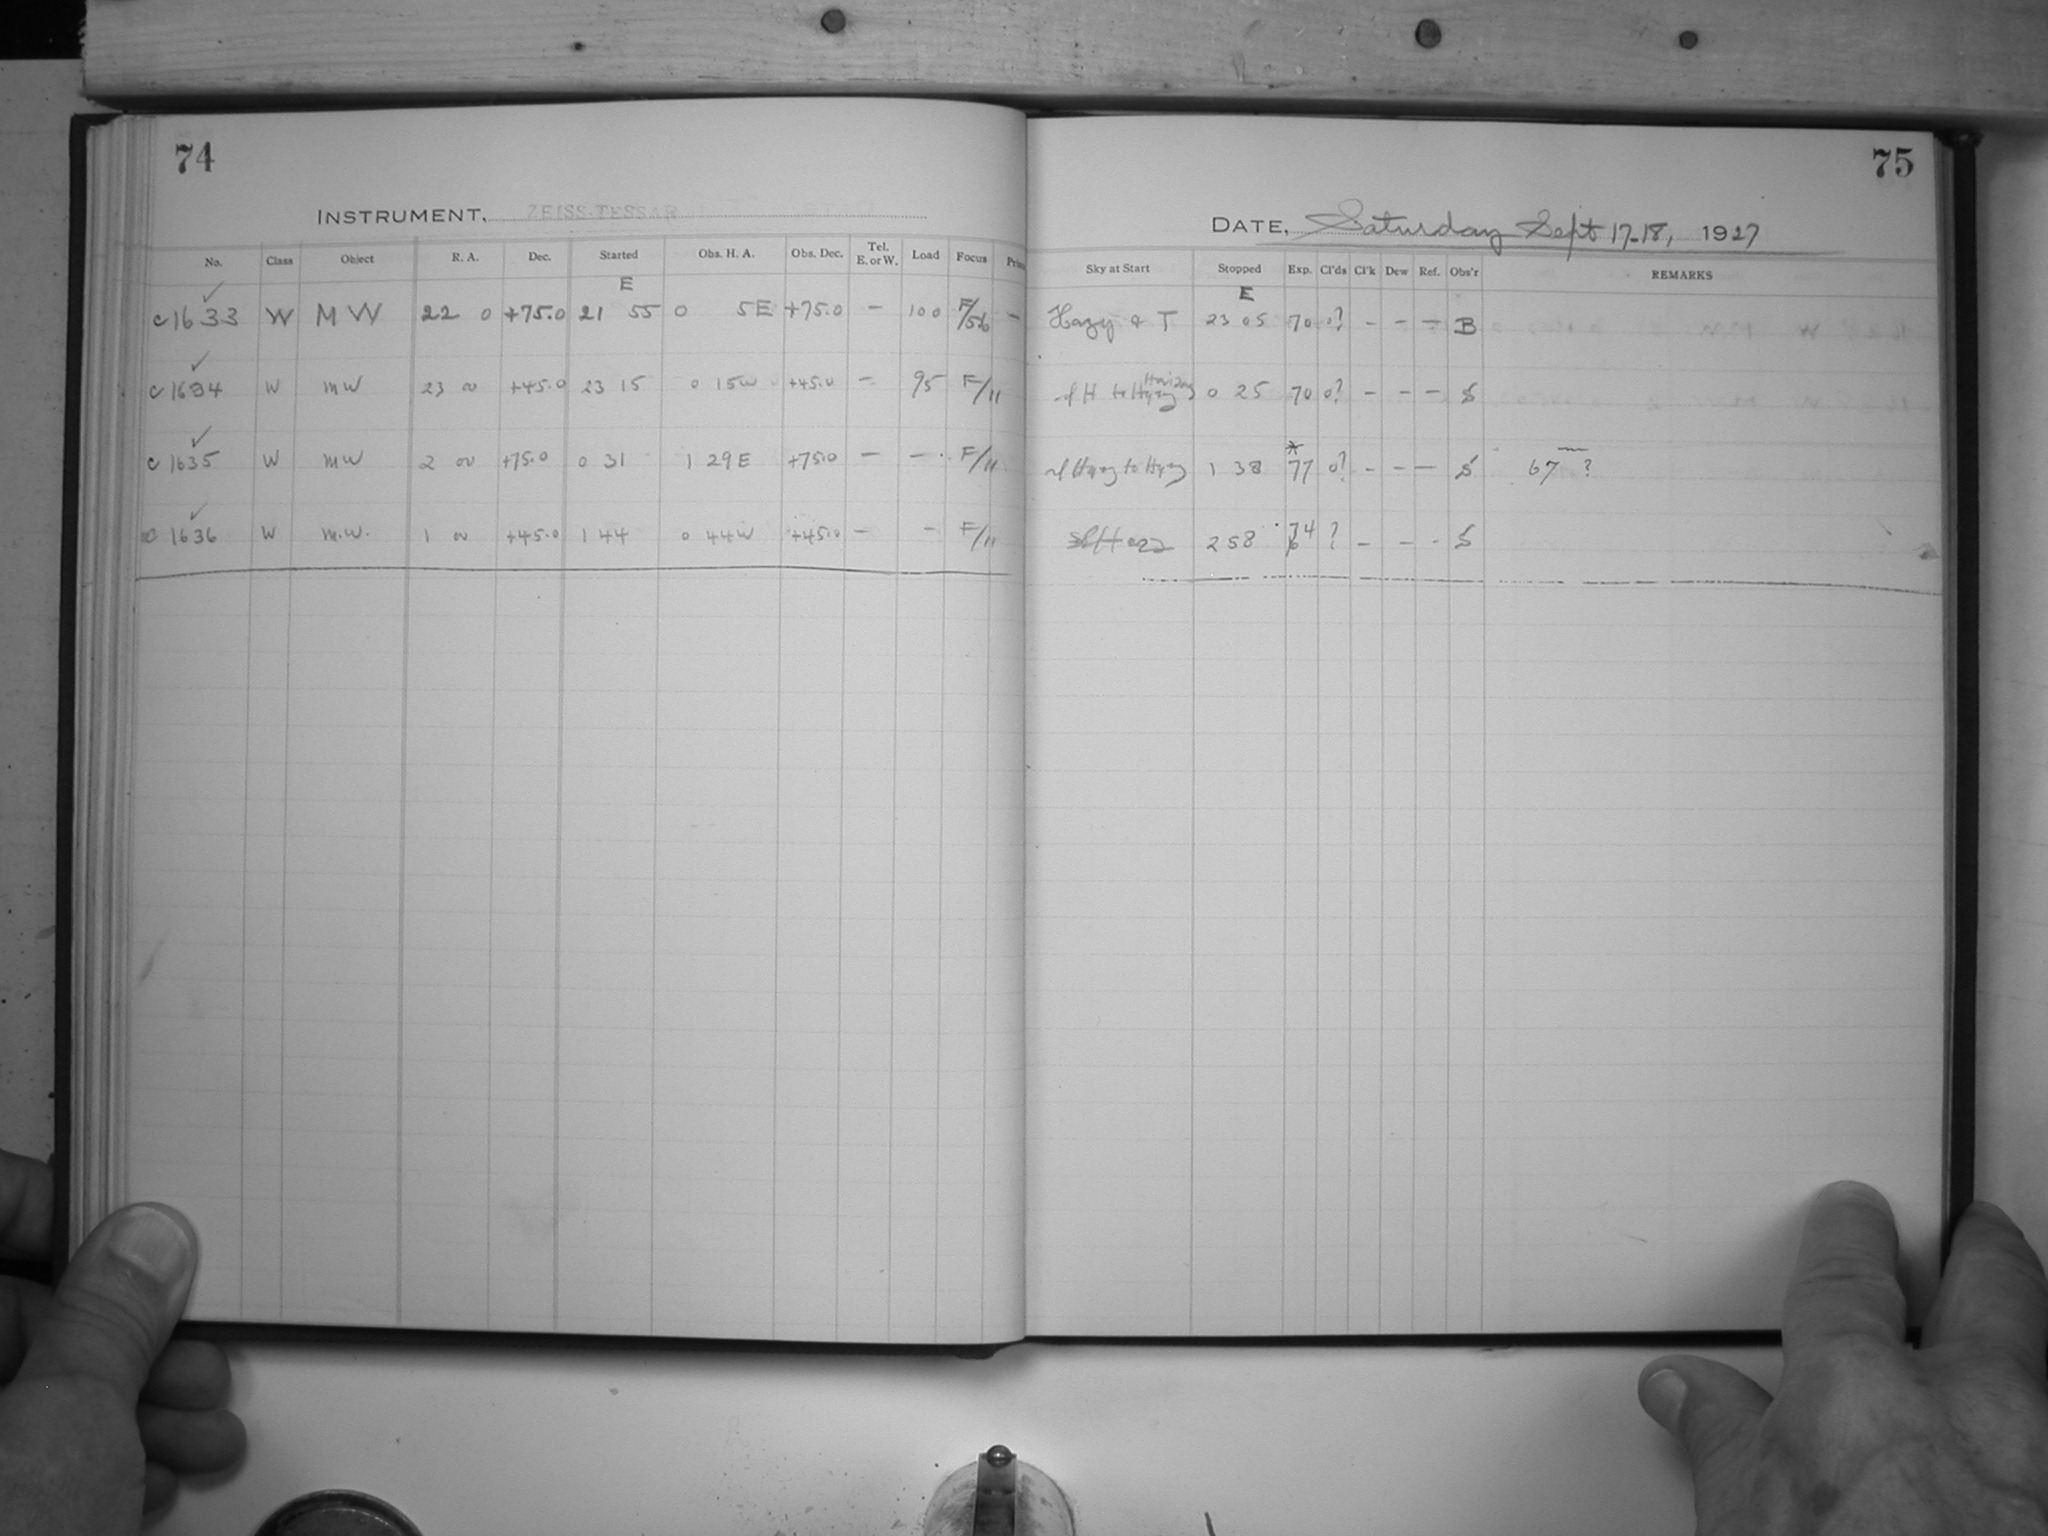 74
INSTRUMENT, ZEISS-TESSAR
No. Class Object R. A. Dec. Started Obs. H. A. Obs. Dec. Tel. E. or W. Load Focus
E
c 1633 W M W 22 0 +75.0 21 55 0 5E +75.0 — 100 F/56 —
c 1634 W MW 23 00 +45.0 23 15 0 15W +45.0 — 95 F/11
c 1635 W MW 2 00 +75.0 0 31 1 29E +75.0 — — F/11
c 1636 W M.W. 1 00 +45.0 1 44 0 44W +45.0 — — F/11
75
DATE, Saturday Sept 17-18, 1927
Sky at Start Stopped Exp. Cl'ds Cl'k Dew Ref. Obs'r REMARKS
E
Hazy & T 23 05 70 0? — — — B
sl H to Hazy 0 25 70 0? — — — S
sl Hazy to Hazy 1 38 *77 0? — — — S 67 ?
2 58 74 ? — — - S